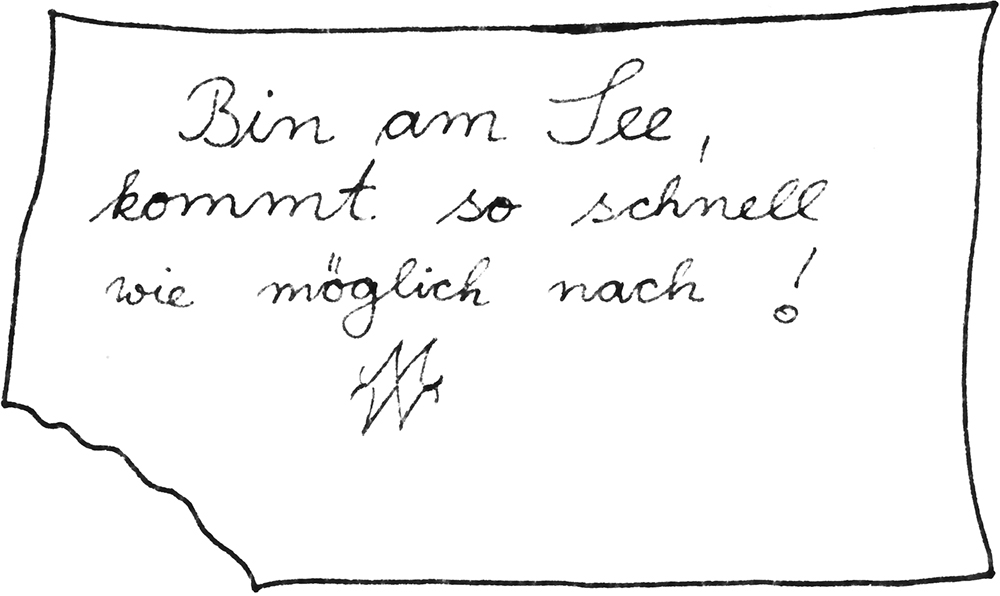 Bin am See,
kommt so schnell
wie möglich nach!